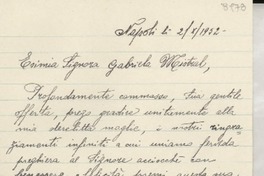 8578
Napoli li 2/5/1952 -
Esimia Signora Gabriela Mistral,
Profondamente commosso, sua gentile
offerta, prego gradire unitamente alla
mia derelitta moglie, i nostri ringra
ziamenti infiniti a cui uniamo fervida
preghiera al Signore acciocché con